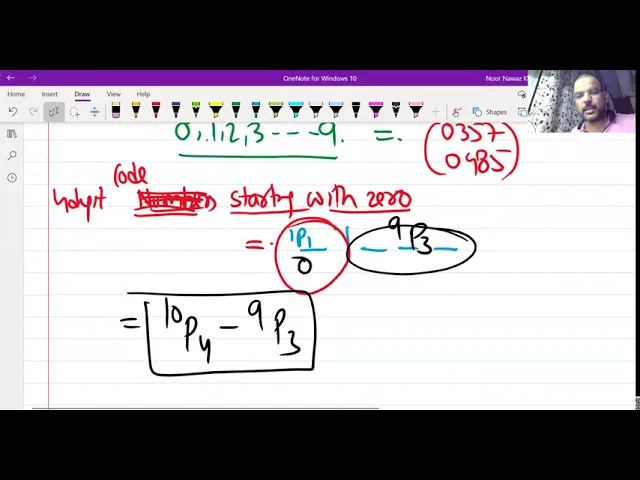 OneNote for Windows 10
Noor Nawaz K
File Home Insert Draw View Help
Shapes
0,1,2,3 - - - 9. =. (0357
0485)
code
4digit starting with zero
=. 1P1 9P3
0
= 10P4 - 9P3